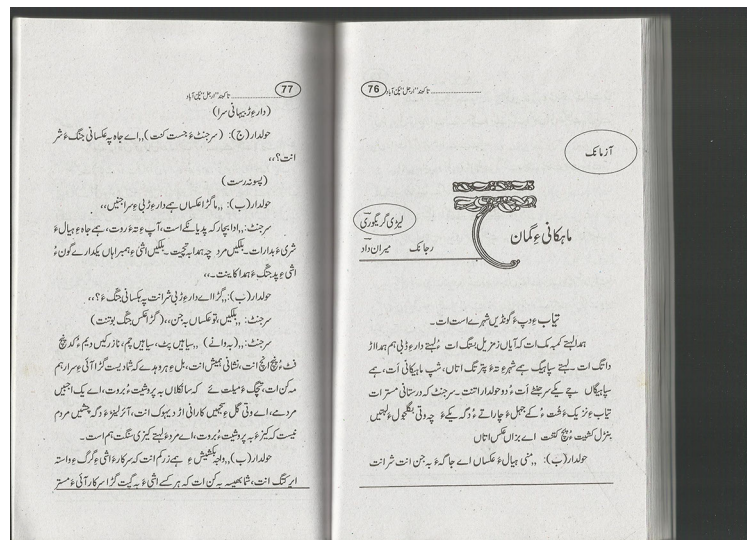 76
آزمانک
ماہکانی ءِ گمان
لیڈی گریگوری
رجانک میران داد
تیاب ءِ دپ ءَ گونڈیں شہرے است ات۔
ہمدا لہتے کمبک ات کہ آیاں زمزیل بستگ ات ءُ لہتے دار ءِ ڈبی ہم ہمدا اڑ
دانگ ات۔ لہتے سپاہیگ ہے شہر ءِ تہ ءَ پترتگ اتاں، شپ ماہکانی اَت، ہے
سپاہیگاں چے یکے سرجنٹے اَت ءُ دو حولدار اتنت۔ سرجنٹ کہ درستانی مستر ات
تیاب ءِ نزیک ءَ شت ءُ کے جہل ءَ چار اتے ءُ دگر یکے ءَ چہ وتی بگلجول ءَ لہتیں
بنزل کشیت ءُ پچ کنت اے بزاں عکس اتاں
حولدار (ب): ,,منی ہیال ءَ عکساں اے جاگہ ءَ بہ جن انت شر انت
77
(دار ءِ ڑبیہانی سرا)
حولدار (ج): (سرجنٹ ءَ جست کنت),,اے جاہ پہ عکسانی جنگ ءَ شر
انت؟,,
(پسو نہ رست)
حولدار (ب): ,,ما گڑا عکساں ہے دار ءِ ڑبی ءِ سرا جنیں,,
سرجنٹ: ,,ادا بچار کہ پدیانکے است، آپ ءِ تہ ءَ روت، ہے جاہ ءِ ہیال ءَ
شری ءَ بدارات۔ بلکیں مرد چہ ہمدا بہ تچیت۔ بلکیں اشی ءِ ہمبراہاں یکدارے گون ءُ
اشی ءِ پد جنگ ءَ ہمدا کاینت۔,,
حولدار (ب): ,,گڑا اے دار ءِ ڑبی شر انت پہ عکسانی جنگ ءَ؟,,
سرجنٹ: ,,بلکیں، تو عکساں بہ جن,, (گڑا عکس جنگ بوتنت)
سرجنٹ: ,,(بہ وانے) ,,سیاہیں پٹ، سیاہیں چم، نازرکیں دیم ءُ کد پنچ
فٹ ءُ پنچ انچ انت، نشانی ہمیش انت، بل ءِ ہروہدے کہ شادیست گڑا آئی ءِ سرا رہم
مہ کن ات، تچگ ءَ میلت ئے کہ سانکلاں بہ پروشیت ءُ بروت، اے یک اجبیں
مردمے، اے وتی گل ءِ تیچیں کارانی اڈ دیہوک انت، آئر لینڈ ءَ دگہ پشیں مردم
نیست کہ کیز ءَ بہ پروشیت ءُ بروت، اے مرد ءَ لہتے کیزی سنگت ہم است۔
حولدار (ب): ,,ولجہ بکشیش ءِ ہے زر کم انت کہ سرکار ءَ اشی ءِ گرگ ءِ واستہ
ایر کتگ انت، شما بھیسہ بہ کن ات کہ ہر کسے اشی ءَ بہ گیت گڑا سرکار آئی ءَ مستر